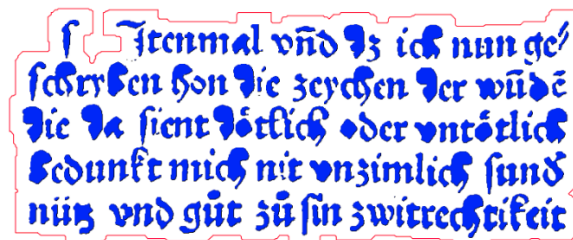 S Jtenmal vn̄d dz ich nun ge⸗
schryben hon die zeychen der wūdē
die da sient dōtlich oder vntötlich
bedunkt mich nit vnzimlich sund
nütz vnd gůt zů sin zwitrechtikeit